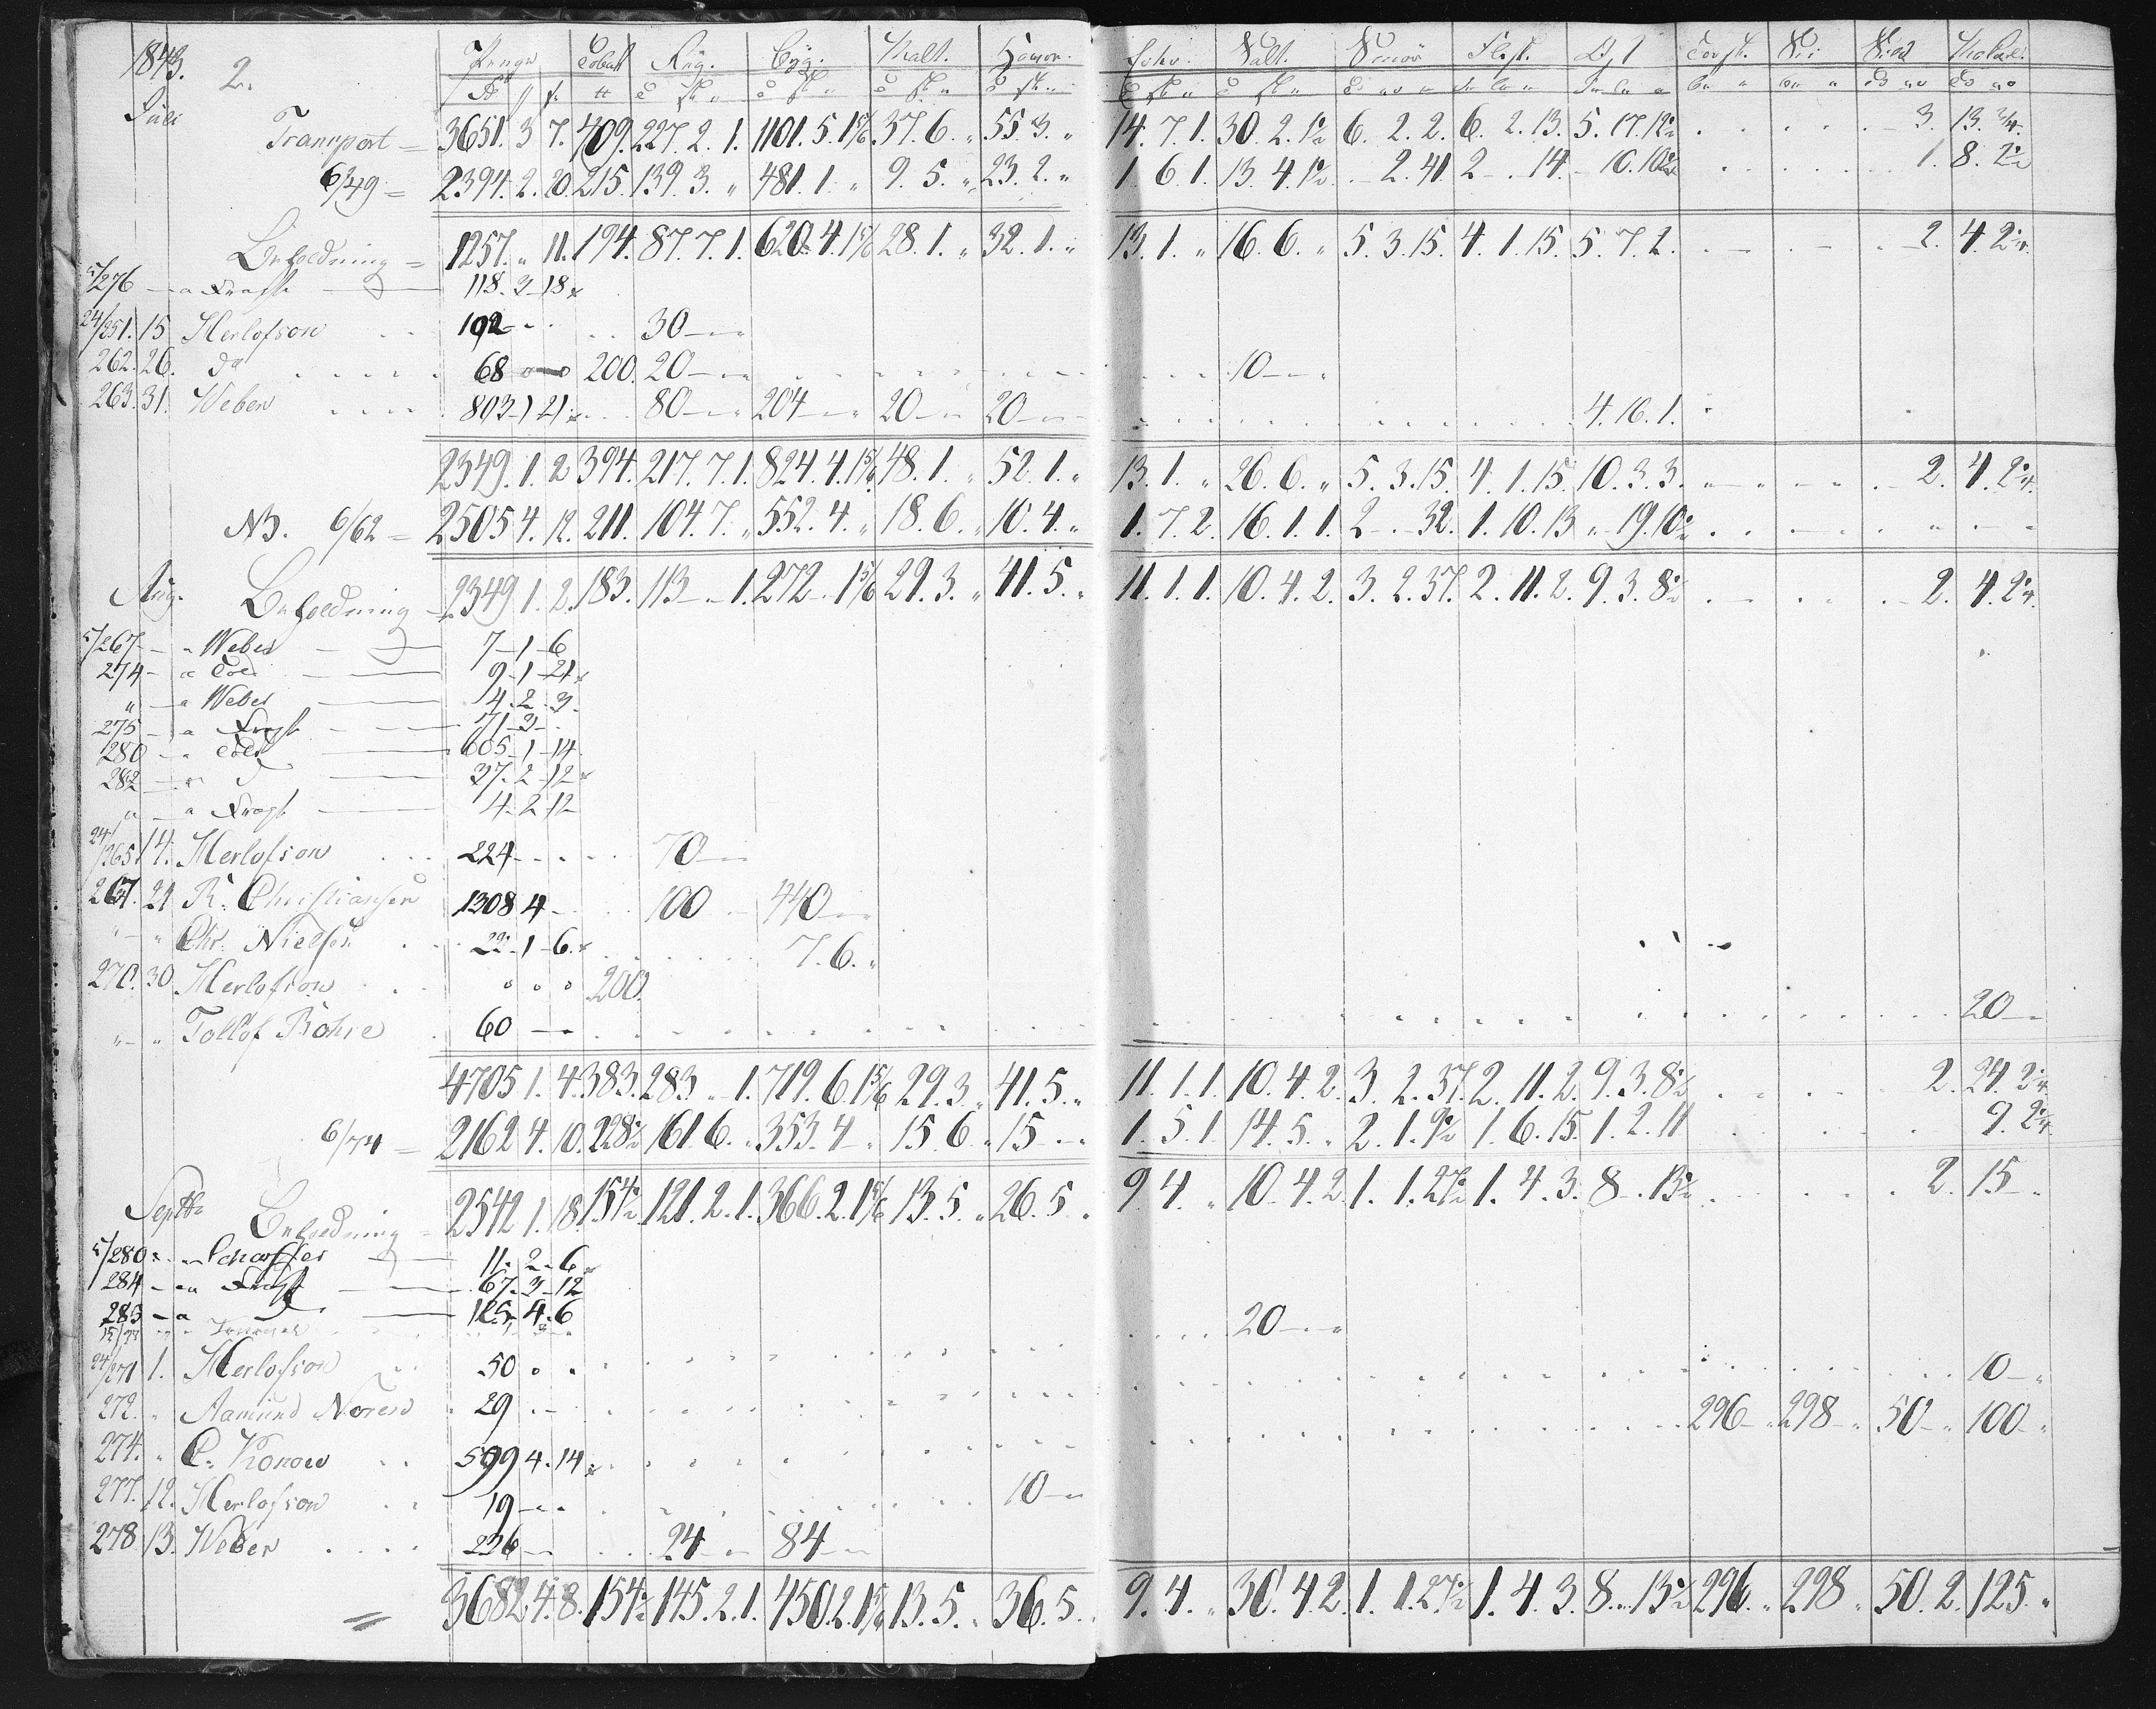 1843. 2. Penge Tobak Rüg. Byg. Malt. Salt. Smör Flesk.
Juli
Transport = 3651. 3 7. 409. 227. 2. 1. 1101. 5. 1 5/6. 37. 6. " 55. 3. " 14. 7. 1. 30. 2. 1½ 6. 2. 2. 6. 2. 13. 5. 17. 12½ 3. 13. ¾.
6/49 = 2394. 2. 20. 215. 139. 3. " 481. 1. " 9. 5. " 23. 2. " 1. 6. 1. 13. 4. 1½. - 2. 41. 2 - 14. - 10. 10½ 1. 8. 2½
Beholdning = 1257. " 11. 194. 87. 7. 1. 620. 4. 1 5/6 28. 1. " 32. 1. " 13. 1. " 16. 6. " 5. 3. 15. 4. 1. 15. 5. 7. 2. 2. 4. 2¼.
5/276 - a Fragt 118. 3 - 18
24/251. 15 Herlofson 102 - - 30 -
262. 26. do 68 200. 20 - 10 -
263. 31. Weber 803 - 1 21 80 - 204 - 20 - 20 - 4. 16. 1.
2349. 1. 2 394. 217. 7. 1. 824. 4. 1 5/6 48. 1. " 52. 1. " 13. 1. " 26. 6. " 5. 3. 15. 4. 1. 15. 10. 3. 3. 2. 4. 2¼.
NB. 6/62 = 2505 4. 12. 211. 104. 7. " 552. 4. " 18. 6. " 10. 4. " 1. 7. 2. 16. 1. 1. 2 - 32. 1. 10. 13 " 19. 10½
Aug. Beholdning 2349 1. 2. 183. 113 - 1. 272 - 1 5/6 29. 3. " 41. 5. " 11. 1. 1. 10. 4. 2. 3. 2. 37. 2. 11. 2. 9. 3. 8½ 2. 4. 2¼.
5/267 - a Weber 7 - 1 - 6
274 - a Told 9 - 1 - 21
" - a Weber 4. 2. 3.
275 - a Fragt 71 - 3 -
280 - a Told 605 - 1 - 14
282 - a 37. 2 - 12
" - a Fragt 4. 2 - 12
24/265. 14. Herlofson 224 - - 70 -
267. 21 R. Christiansen 1308 4 - 100 - 440 -
" - " Chr. Nielsen 22. 1 - 6. 7. 6. "
270. 30 Herlofson 200.
" - " Tollof Böhre 60 - 20 -
4705 1. 4. 383. 283. " 1. 719. 6. 1 5/6 29. 3. " 41. 5. " 11. 1. 1. 10. 4. 2. 3. 2. 37. 2. 11. 2. 9. 3. 8½ 2. 24. 2¼
6/74 = 2162 4. 10. 228½ 161 6. " 353. 4 " 15 6. " 15 - 1. 5. 1. 14. 5. " 2. 1. 9½ 1. 6. 15. 1. 2. 11 9. 2¼
Septbr Beholdning = 2542 1. 18. 154½ 121. 2. 1. 366. 2. 1 5/6 13. 5. " 26. 5 " 9. 4. " 10. 4. 2 1. 1. 27½ 1. 4. 3. 8 - 13½ 2. 15 -
5/280 - a Schaffer 11. 2 - 6
284 - a Fragt 67. 3 - 12
285 - a 125. 4. 6
20 -
24/271 1. Herlofson 50 10 -
272. " Aamund Noreso 29 296 - 298 - 50 - 100 -
274. " C. Konow 599 4. 14
277. 12. Herlofson 19 - 10 -
278. 13. Weber 236 - 24 - 84 -
3682 4. 8. 154½ 145. 2. 1. 450. 2. 1 5/6 13. 5. " 36. 5. " 9. 4. " 30. 4. 2. 1. 1. 27½ 1. 4. 3. 8. " 13½ 296. " 298. " 50. 2. 125. "